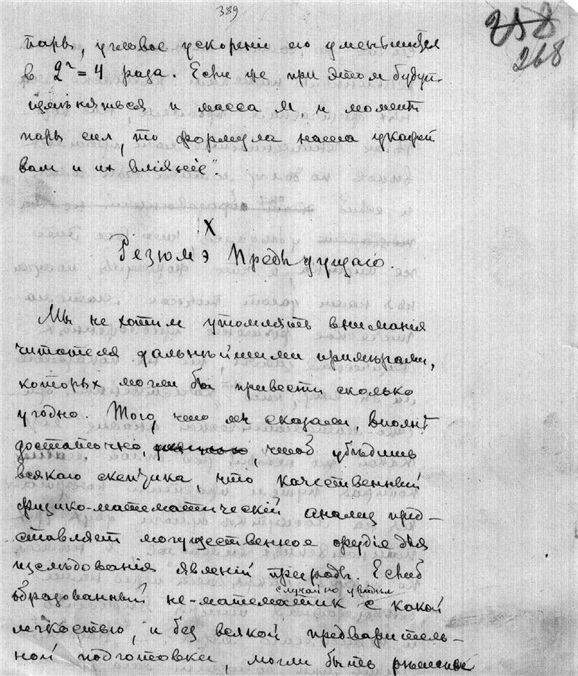 389
258
268
пары, угловое ускореніе его уменьшится
в 2² = 4 раза. Если же при этом будут
измѣняться и масса М, и момент
пары сил, то формула наша укажет
вам и их вліяніе".
X
Резюмэ Предыдущаго.
Мы не хотим утомлять вниманія
читателя дальнѣйшими примѣрами,
которых могли бы привести сколько
угодно. Того, что мы сказали, вполнѣ
достаточно, чтоб убѣдить
всякаго скептика, что качественный
физико-математическій анализ пред-
ставляет могущественное орудіе для
изслѣдованія явленій природы. Если б
случайно увидѣл
образованный не-математик с какой
легкостью, и без всякой предваритель-
ной подготовки, могли быть рѣшены